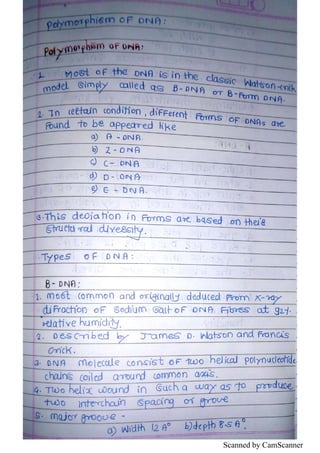 Polymorphism OF DNA:
Polymorphism OF DNA:
1. Most OF the DNA is in the classic Watson-crick
model simply called as B-DNA or B-Form DNA.
2. In certain condition, different Forms of DNAs are
Found to be appeared like
a) A - DNA
b) Z - DNA
c) C - DNA
d) D - DNA
e) E - DNA.
3. This deviation in Forms are based on their
structural diversity.
Types OF DNA:
B-DNA:
1. most common and originally deduced From X-ray
diffraction OF sodium salt OF DNA Fibres at 92%
relative humidity.
2. Described by James D. Watson and Francis
Crick.
3. DNA molecule consist OF two helical polynucleotide
chains coiled around common axis.
4. Two helix wound in such a way as to produce
two interchain spacing or grove
5. major groove -
a) Width 12 A° b) depth 8.5 A°.
Scanned by CamScanner